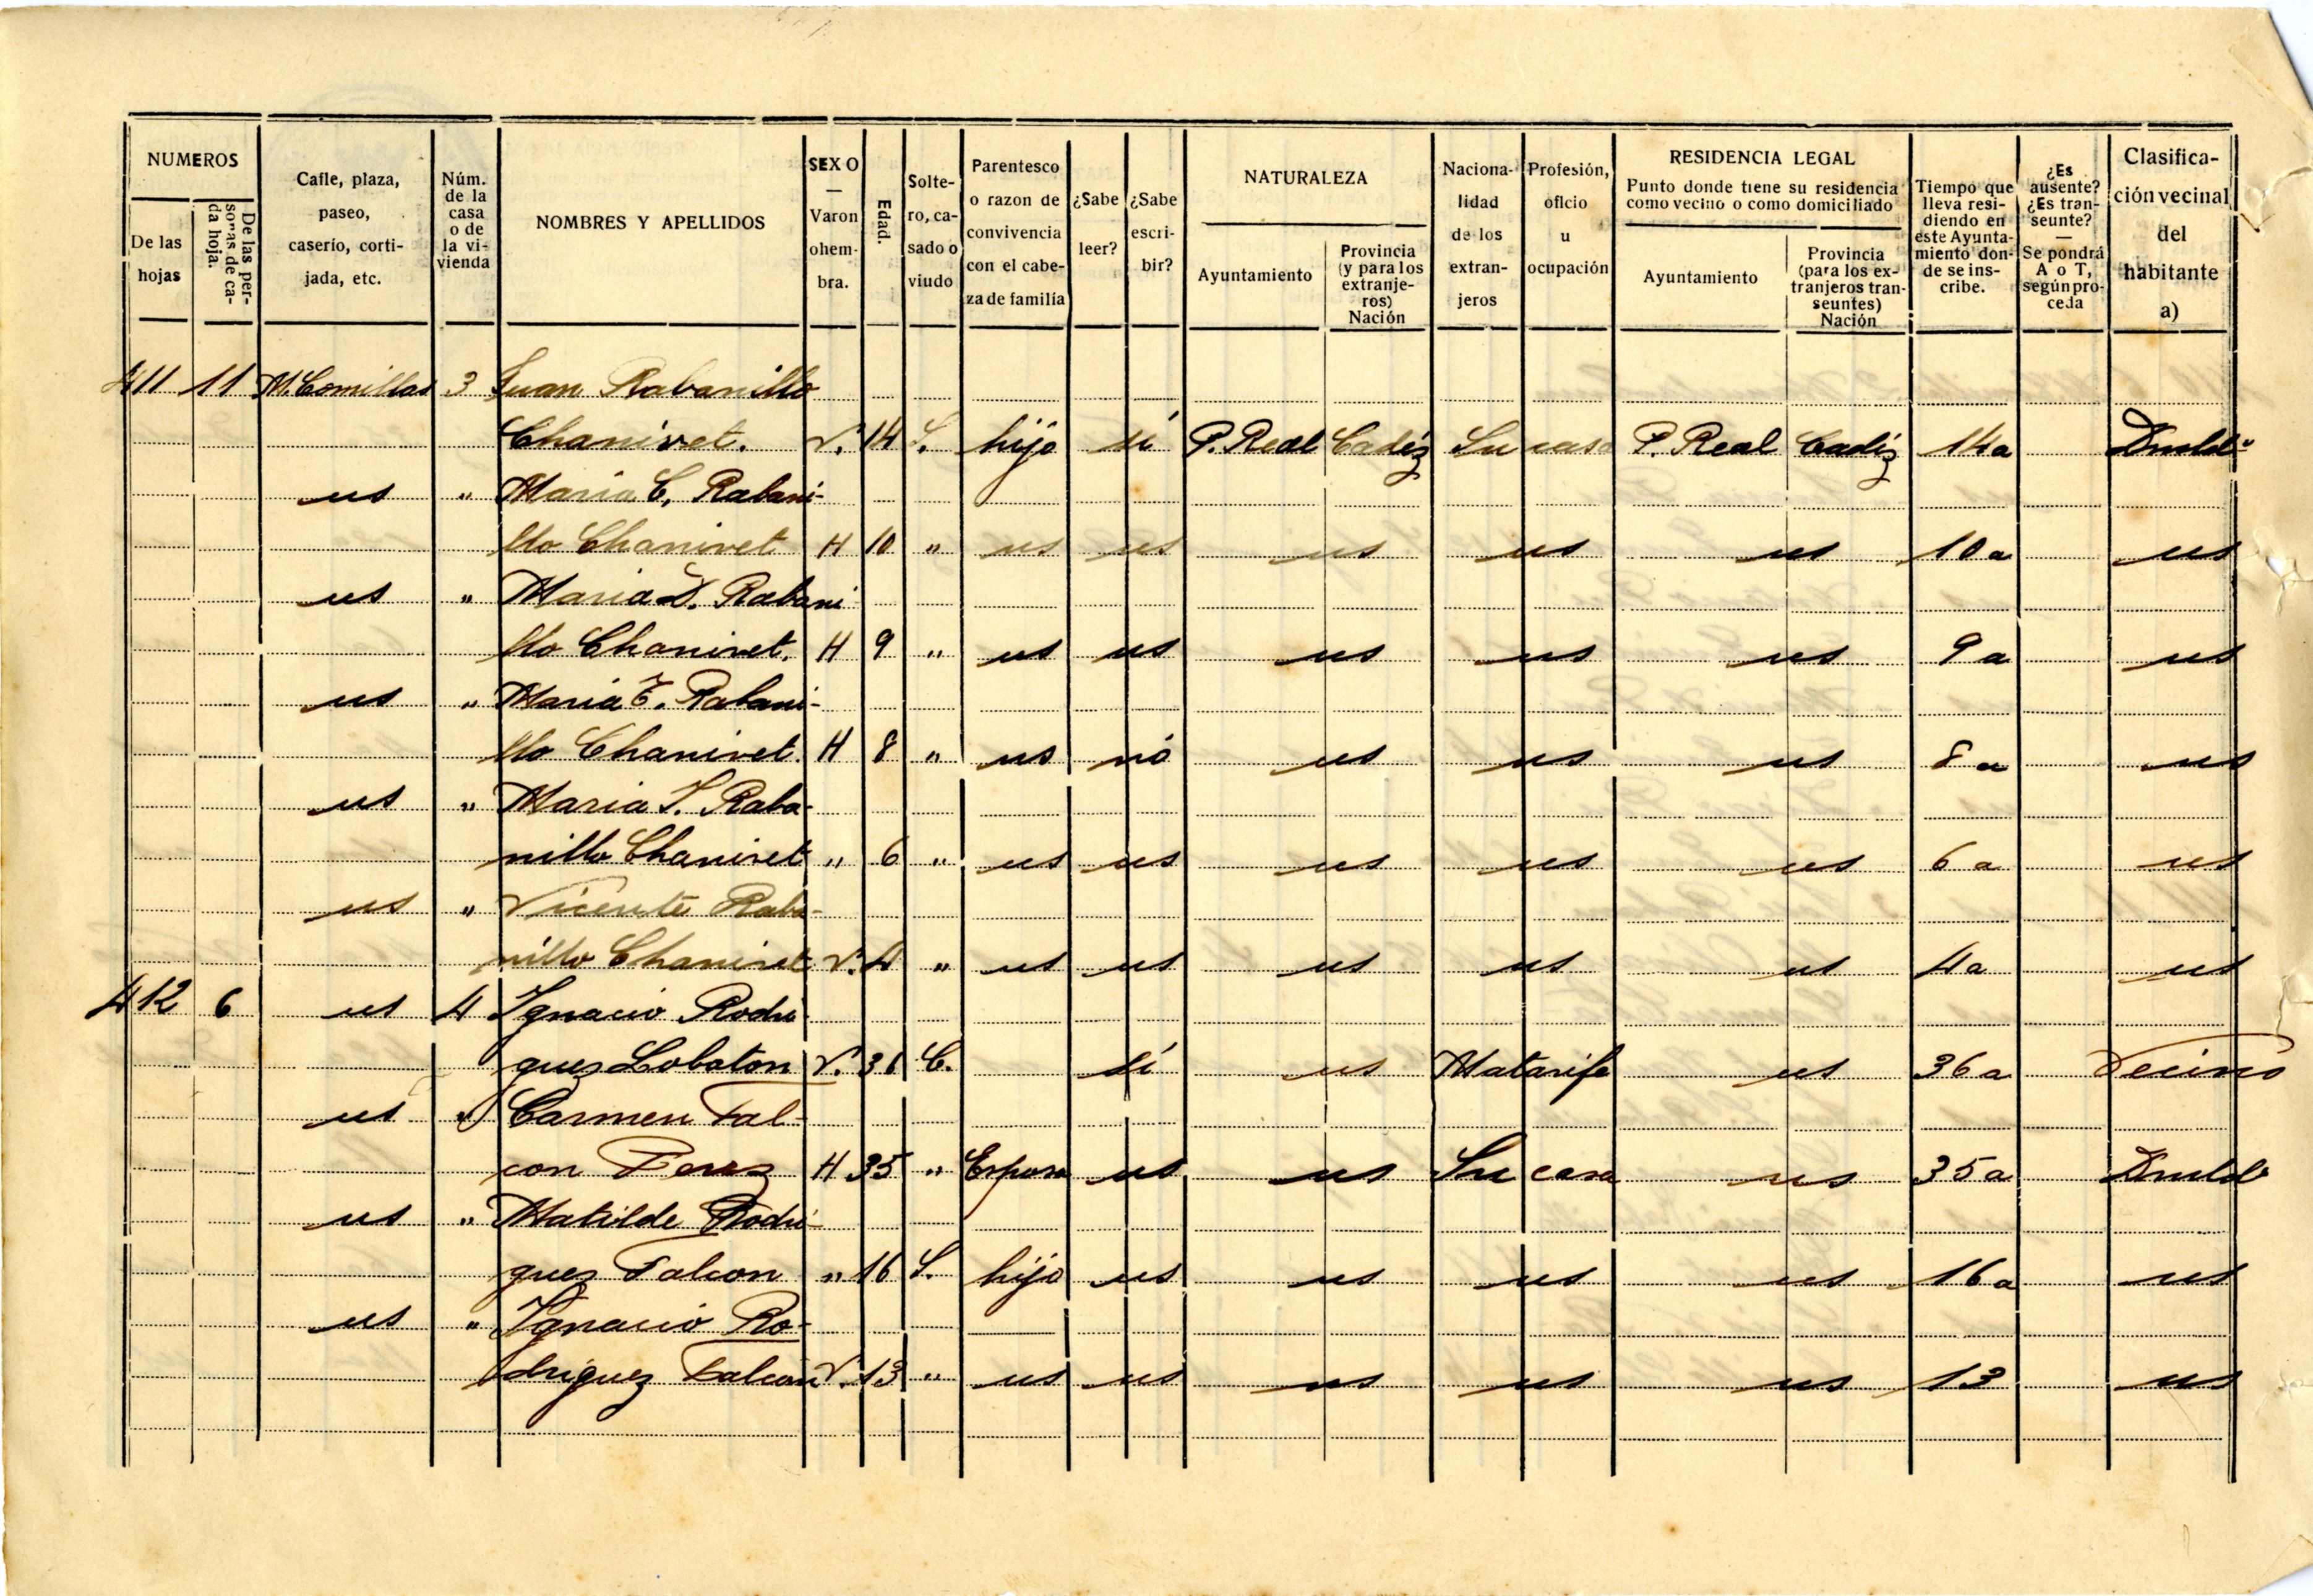 NUMEROS
De las hojas
De las personas de cada hoja.
Calle, plaza, paseo, caserío, cortijada, etc.
Núm. de la casa o de la vivienda
NOMBRES Y APELLIDOS
SEXO — Varon ohembra.
Edad.
Soltero, casado o viudo
Parentesco o razon de convivencia con el cabeza de familia
¿Sabe leer?
¿Sabe escribir?
NATURALEZA
Ayuntamiento
Provincia (y para los extranjeros) Nación
Nacionalidad de los extranjeros
Profesión, oficio u ocupación
RESIDENCIA LEGAL
Punto donde tiene su residencia como vecino o como domiciliado
Ayuntamiento
Provincia (para los extranjeros transeuntes) Nación
Tiempo que lleva residiendo en este Ayuntamiento donde se inscribe.
¿Es ausente? ¿Es transeunte? — Se pondrá A o T, según proceda
Clasificación vecinal del habitante a)
411 11 M. Comillas 3 Juan Rabanillo
Chanivet. V. 14 S. hijo si P. Real Cadiz Su casa P. Real Cadiz 14 a
us " Maria C. Rabani-
llo Chanivet H 10 " us us us us us 10 a us
us " Maria D. Rabani
llo Chanivet. H 9 " us us us us us 9 a us
us " Maria E. Rabani-
llo Chanivet. H 8 " us nó us us us 8 a us
us " Maria S. Raba-
nillo Chanivet " 6 " us us us us us 6 a us
us " Vicente Raba-
nillo Chanivet V. 4 " us us us us us 4 a us
412 6 us 4 Ignacio Rodri
guez Lobaton V. 36 C. si us Matarife us 36 a Vecino
us " Carmen Fal-
con Perez H 35 " Esposa us us Su casa us 35 a
us " Matilde Rodri-
guez Falcon " 16 S. hija us us us us 16 a us
us " Ignacio Ro-
driguez Falcon V. 13 " us us us us us 13 us